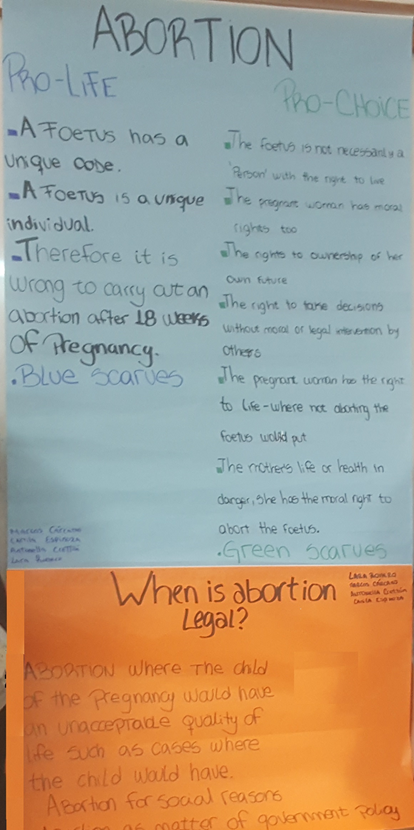 ABORTION
PRO-LIFE
A FOETUS HAS A
UNIQUE CODE.
A FOETUS IS A UNIQUE
individual.
Therefore it is
wrong to carry out an
abortion after 18 weeks
OF Pregnancy.
.Blue scarves
PRO-CHOICE
The foetus is not necessarily a
'Person' with the right to live
The pregnant woman has moral
rights too
The rights to ownership of her
own future
The right to take decisions
without moral or legal intervention by
others
The pregnant woman has the right
to life-where not aborting the
foetus would put
The mother's life or health in
danger, she has the moral right to
abort the foetus.
.Green scarves
When is abortion
Legal?
ABORTION where the child
of the pregnancy would have
an unacceptable quality of
life such as cases where
the child would have.
Abortion for social reasons
as matter of government policy